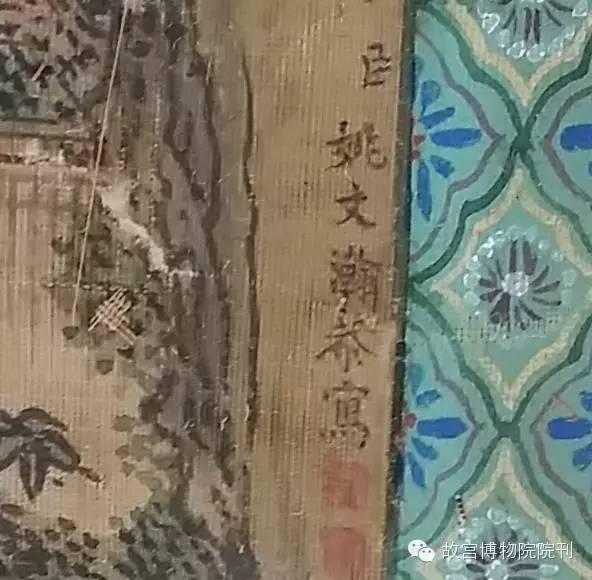 臣
姚文瀚恭寫
故宫博物院院刊